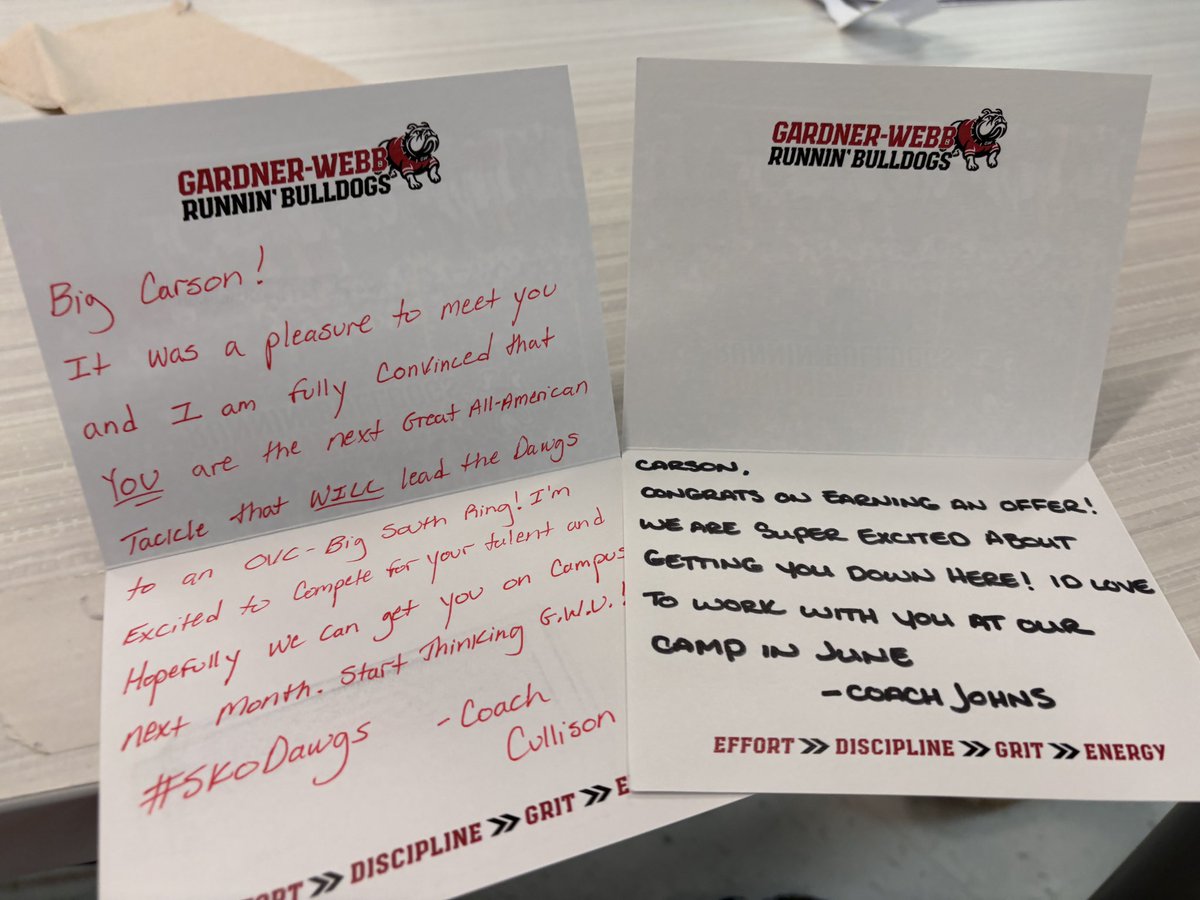 GARDNER-WEBB
RUNNIN' BULLDOGS
Big Carson!
It was a pleasure to meet you
and I am fully convinced that
YOU are the next Great All-American
Tackle that WILL lead the Dawgs
to an OVC-Big South Ring! I'm
Excited to Compete for your talent and
Hopefully we can get you on Campus
next Month. Start Thinking G.W.U.!
#SKoDawgs - Coach
Cullison
EFFORT >> DISCIPLINE >> GRIT >> E
GARDNER-WEBB
RUNNIN' BULLDOGS
CARSON,
CONGRATS ON EARNING AN OFFER!
WE ARE SUPER EXCITED ABOUT
GETTING YOU DOWN HERE! ID LOVE
TO WORK WITH YOU AT OUR
CAMP IN JUNE
- COACH JOHNS
EFFORT >> DISCIPLINE >> GRIT >> ENERGY